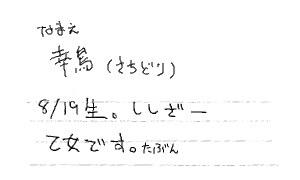 なまえ
幸鳥(さちどり)
8/19生。ししざー
乙女です。たぶん